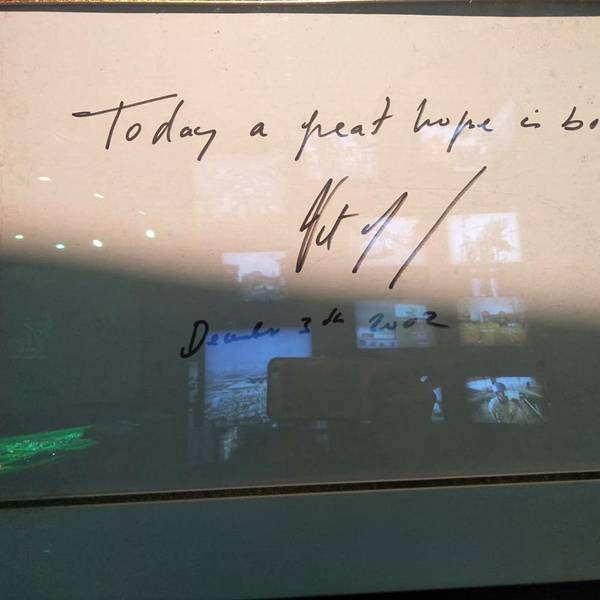 Today a great hope is bo
December 3th 2002